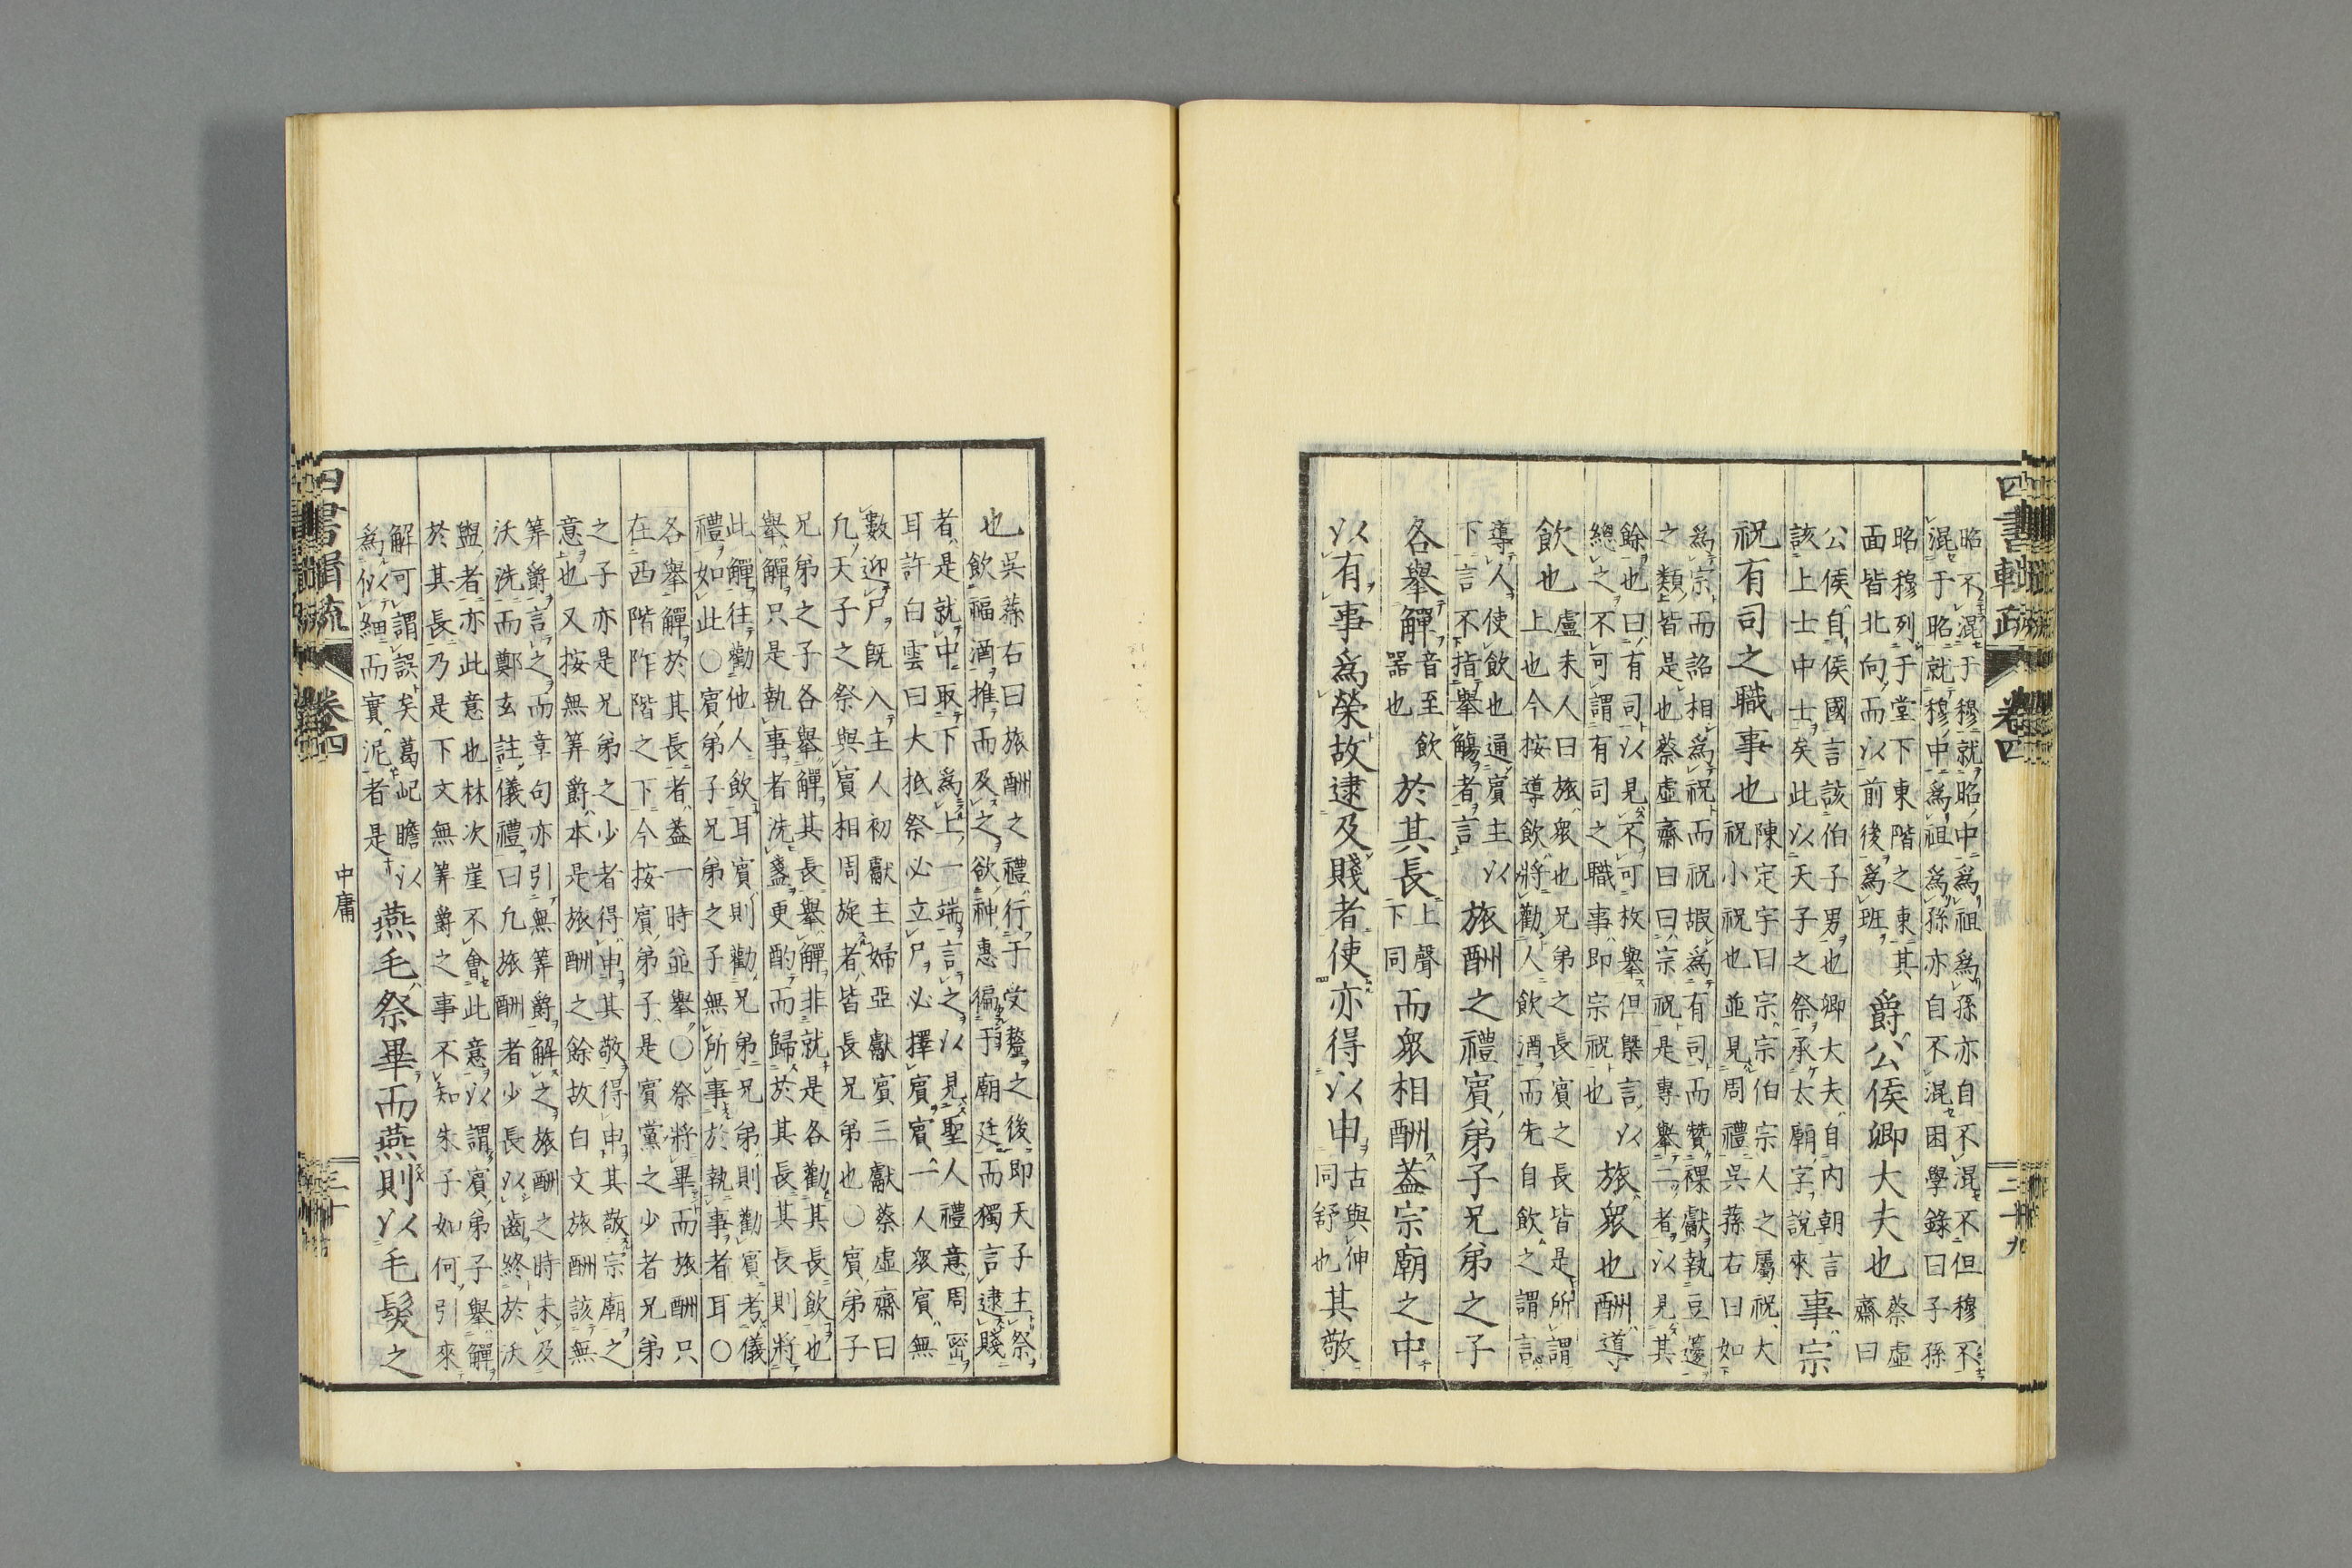 四書輯疏
卷四
二十九
昭不混于穆就昭中爲祖爲孫亦自不混不但穆不
混于昭就穆中爲祖爲孫亦自不混困學錄曰子孫
昭穆列于堂下東階之東其
面皆北向而以前後爲班
爵公侯卿大夫也
蔡虛
齋曰
公侯自侯國言該伯子男也卿大夫自內朝言
該上士中士矣此以天子之祭承太廟字說來
事宗
祝有司之職事也
陳定宇曰宗宗伯宗人之屬祝大
祝小祝也並見周禮吳蓀右曰如
爲宗而詔相爲祝而祝嘏爲有司而贊祼獻執豆籩
之類皆是也蔡虛齋曰曰宗祝是專舉二者以見其
餘也曰有司以見不可枚舉但槩言以
總之不可謂有司之職事即宗祝也
旅衆也酬導
飲也
盧未人曰旅衆也兄弟之長賓之長皆是所謂
上也今按導飲將勸人飲酒而先自飲之謂言
導人使飲也通賓主以
下言不指舉觴者言
旅酬之禮賓弟子兄弟之子
各舉觶
音至飲
器也
於其長
上聲
下同
而衆相酬蓋宗廟之中
以有事爲榮故逮及賤者使亦得以申
古與伸
同舒也
其敬
也
吳蓀右曰旅酬之禮行于受釐之後即天子主祭
飲福酒推而及之欲神惠徧于廟廷而獨言逮賤
者是就中取下爲上一端言之以見聖人禮意周密
耳許白雲曰大抵祭必立尸必擇賓賓一人衆賓無
數迎尸既入主人初獻主婦亞獻賓三獻蔡虛齋曰
凡天子之祭與賓相周旋者皆長兄弟也○賓弟子
兄弟之子各舉觶其長舉觶非就是各勸其長飲也
舉觶只是執事者洗盞更酌而歸於其長其長則將
此觶往勸他人飲耳賓則勸兄弟兄弟則勸賓考儀
禮如此○賓弟子兄弟之子無所事於執事者耳○
各舉觶於其長者蓋一時並舉○祭將畢而旅酬只
在西階阼階之下今按賓弟子是賓黨之少者兄弟
之子亦是兄弟之少者得申其敬得申其敬宗廟之
意也又按無筭爵本是旅酬之餘故白文旅酬該無
筭爵言之而章句亦引無筭爵解之旅酬之時未及
沃洗而鄭玄註儀禮曰凡旅酬者少長以齒終於沃
盥者亦此意也林次崖不會此意以謂賓弟子舉觶
於其長乃是下文無筭爵之事不知朱子如何引來
解可謂誤矣葛屺瞻以
爲似細而實泥者是
燕毛祭畢而燕則以毛髮之
中庸
四書輯疏
卷四
三十